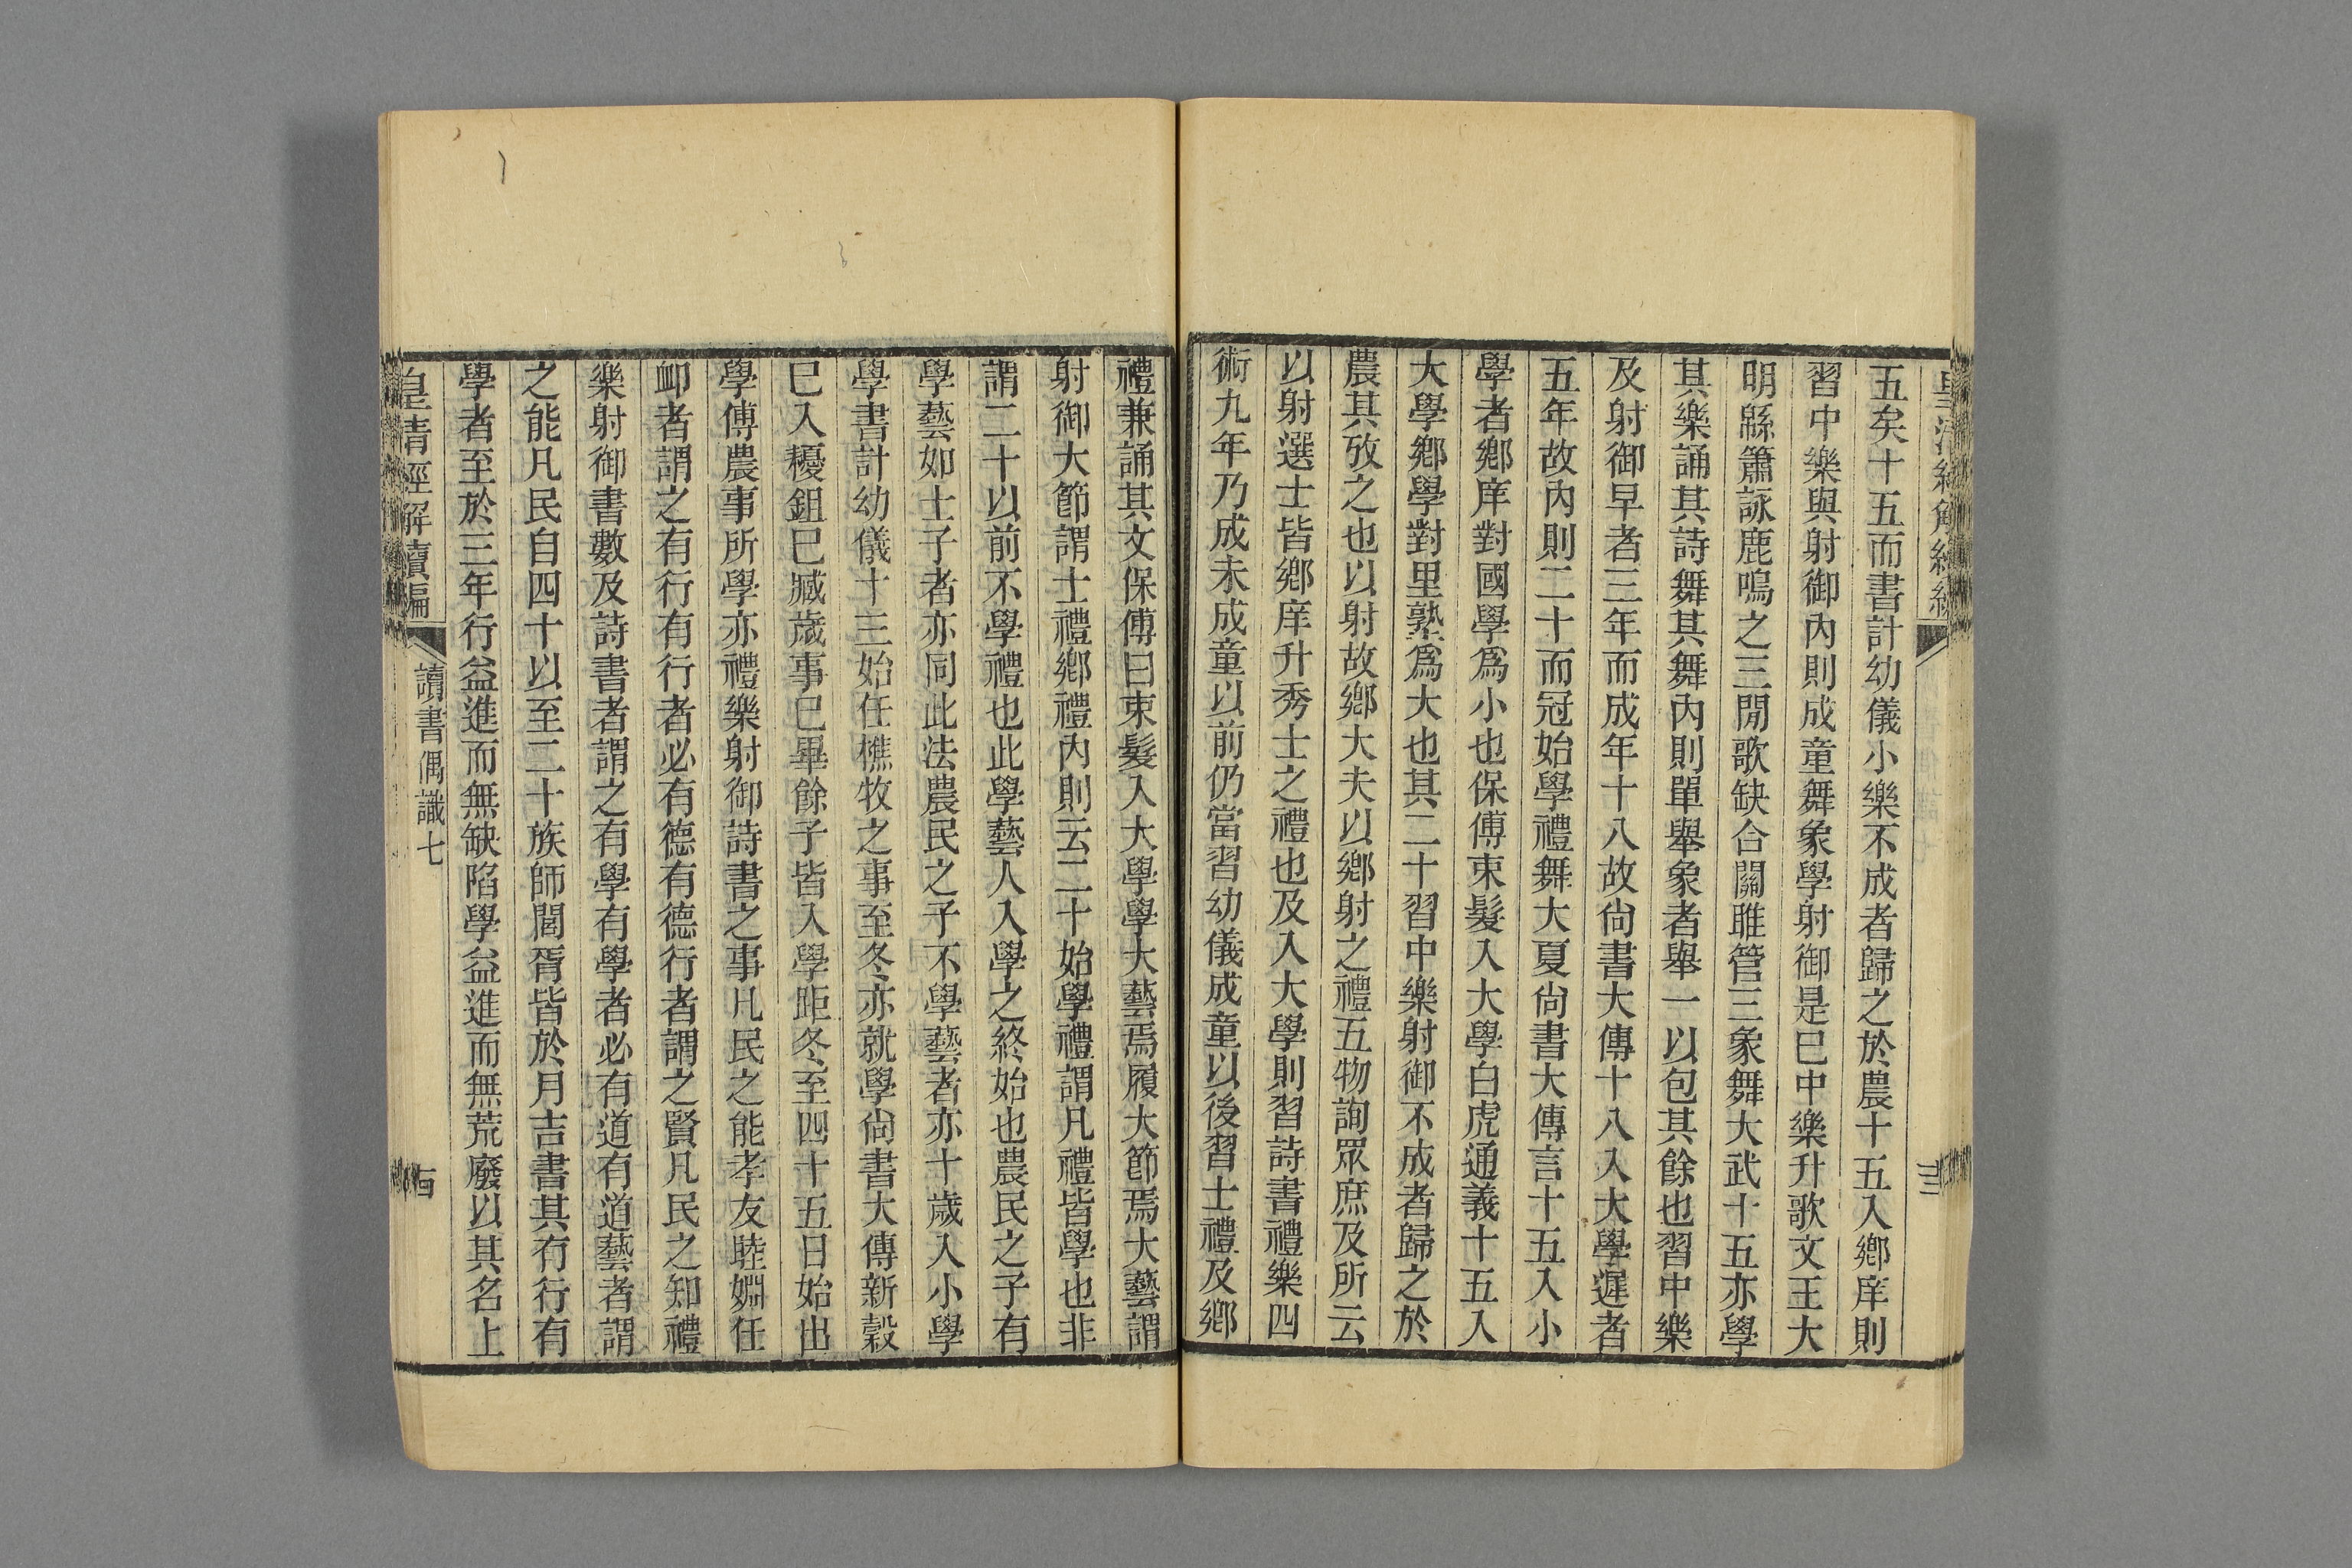 五矣十五而書計幼儀小樂不成者歸之於農十五入鄉庠則
習中樂與射御內則成童舞象學射御是巳中樂升歌文王大
明緜簫詠鹿鳴之三閒歌缺合關雎管三象舞大武十五亦學
其樂誦其詩舞其舞內則單舉象者舉一以包其餘也習中樂
及射御早者三年而成年十八故尙書大傳十八入大學遲者
五年故內則二十而冠始學禮舞大夏尙書大傳言十五入小
學者鄉庠對國學爲小也保傅束髮入大學白虎通義十五入
大學鄉學對里塾爲大也其二十習中樂射御不成者歸之於
農其攷之也以射故鄉大夫以鄉射之禮五物詢眾庶及所云
以射選士皆鄉庠升秀士之禮也及入大學則習詩書禮樂四
術九年乃成未成童以前仍當習幼儀成童以後習士禮及鄉
禮兼誦其文保傅曰束髮入大學學大藝焉履大節焉大藝謂
射御大節謂士禮鄉禮內則云二十始學禮謂凡禮皆學也非
謂二十以前不學禮也此學藝人入學之終始也農民之子有
學藝如士子者亦同此法農民之子不學藝者亦十歲入小學
學書計幼儀十三始任樵牧之事至冬亦就學尙書大傳新穀
巳入耰鉏巳臧歲事巳畢餘子皆入學距冬至四十五日始出
學傅農事所學亦禮樂射御詩書之事凡民之能孝友睦婣任
卹者謂之有行有行者必有德有德行者謂之賢凡民之知禮
樂射御書數及詩書者謂之有學有學者必有道有道藝者謂
之能凡民自四十以至二十族師閭胥皆於月吉書其有行有
學者至於三年行益進而無缺陷學益進而無荒廢以其名上
皇清經解續編
讀書偶識七